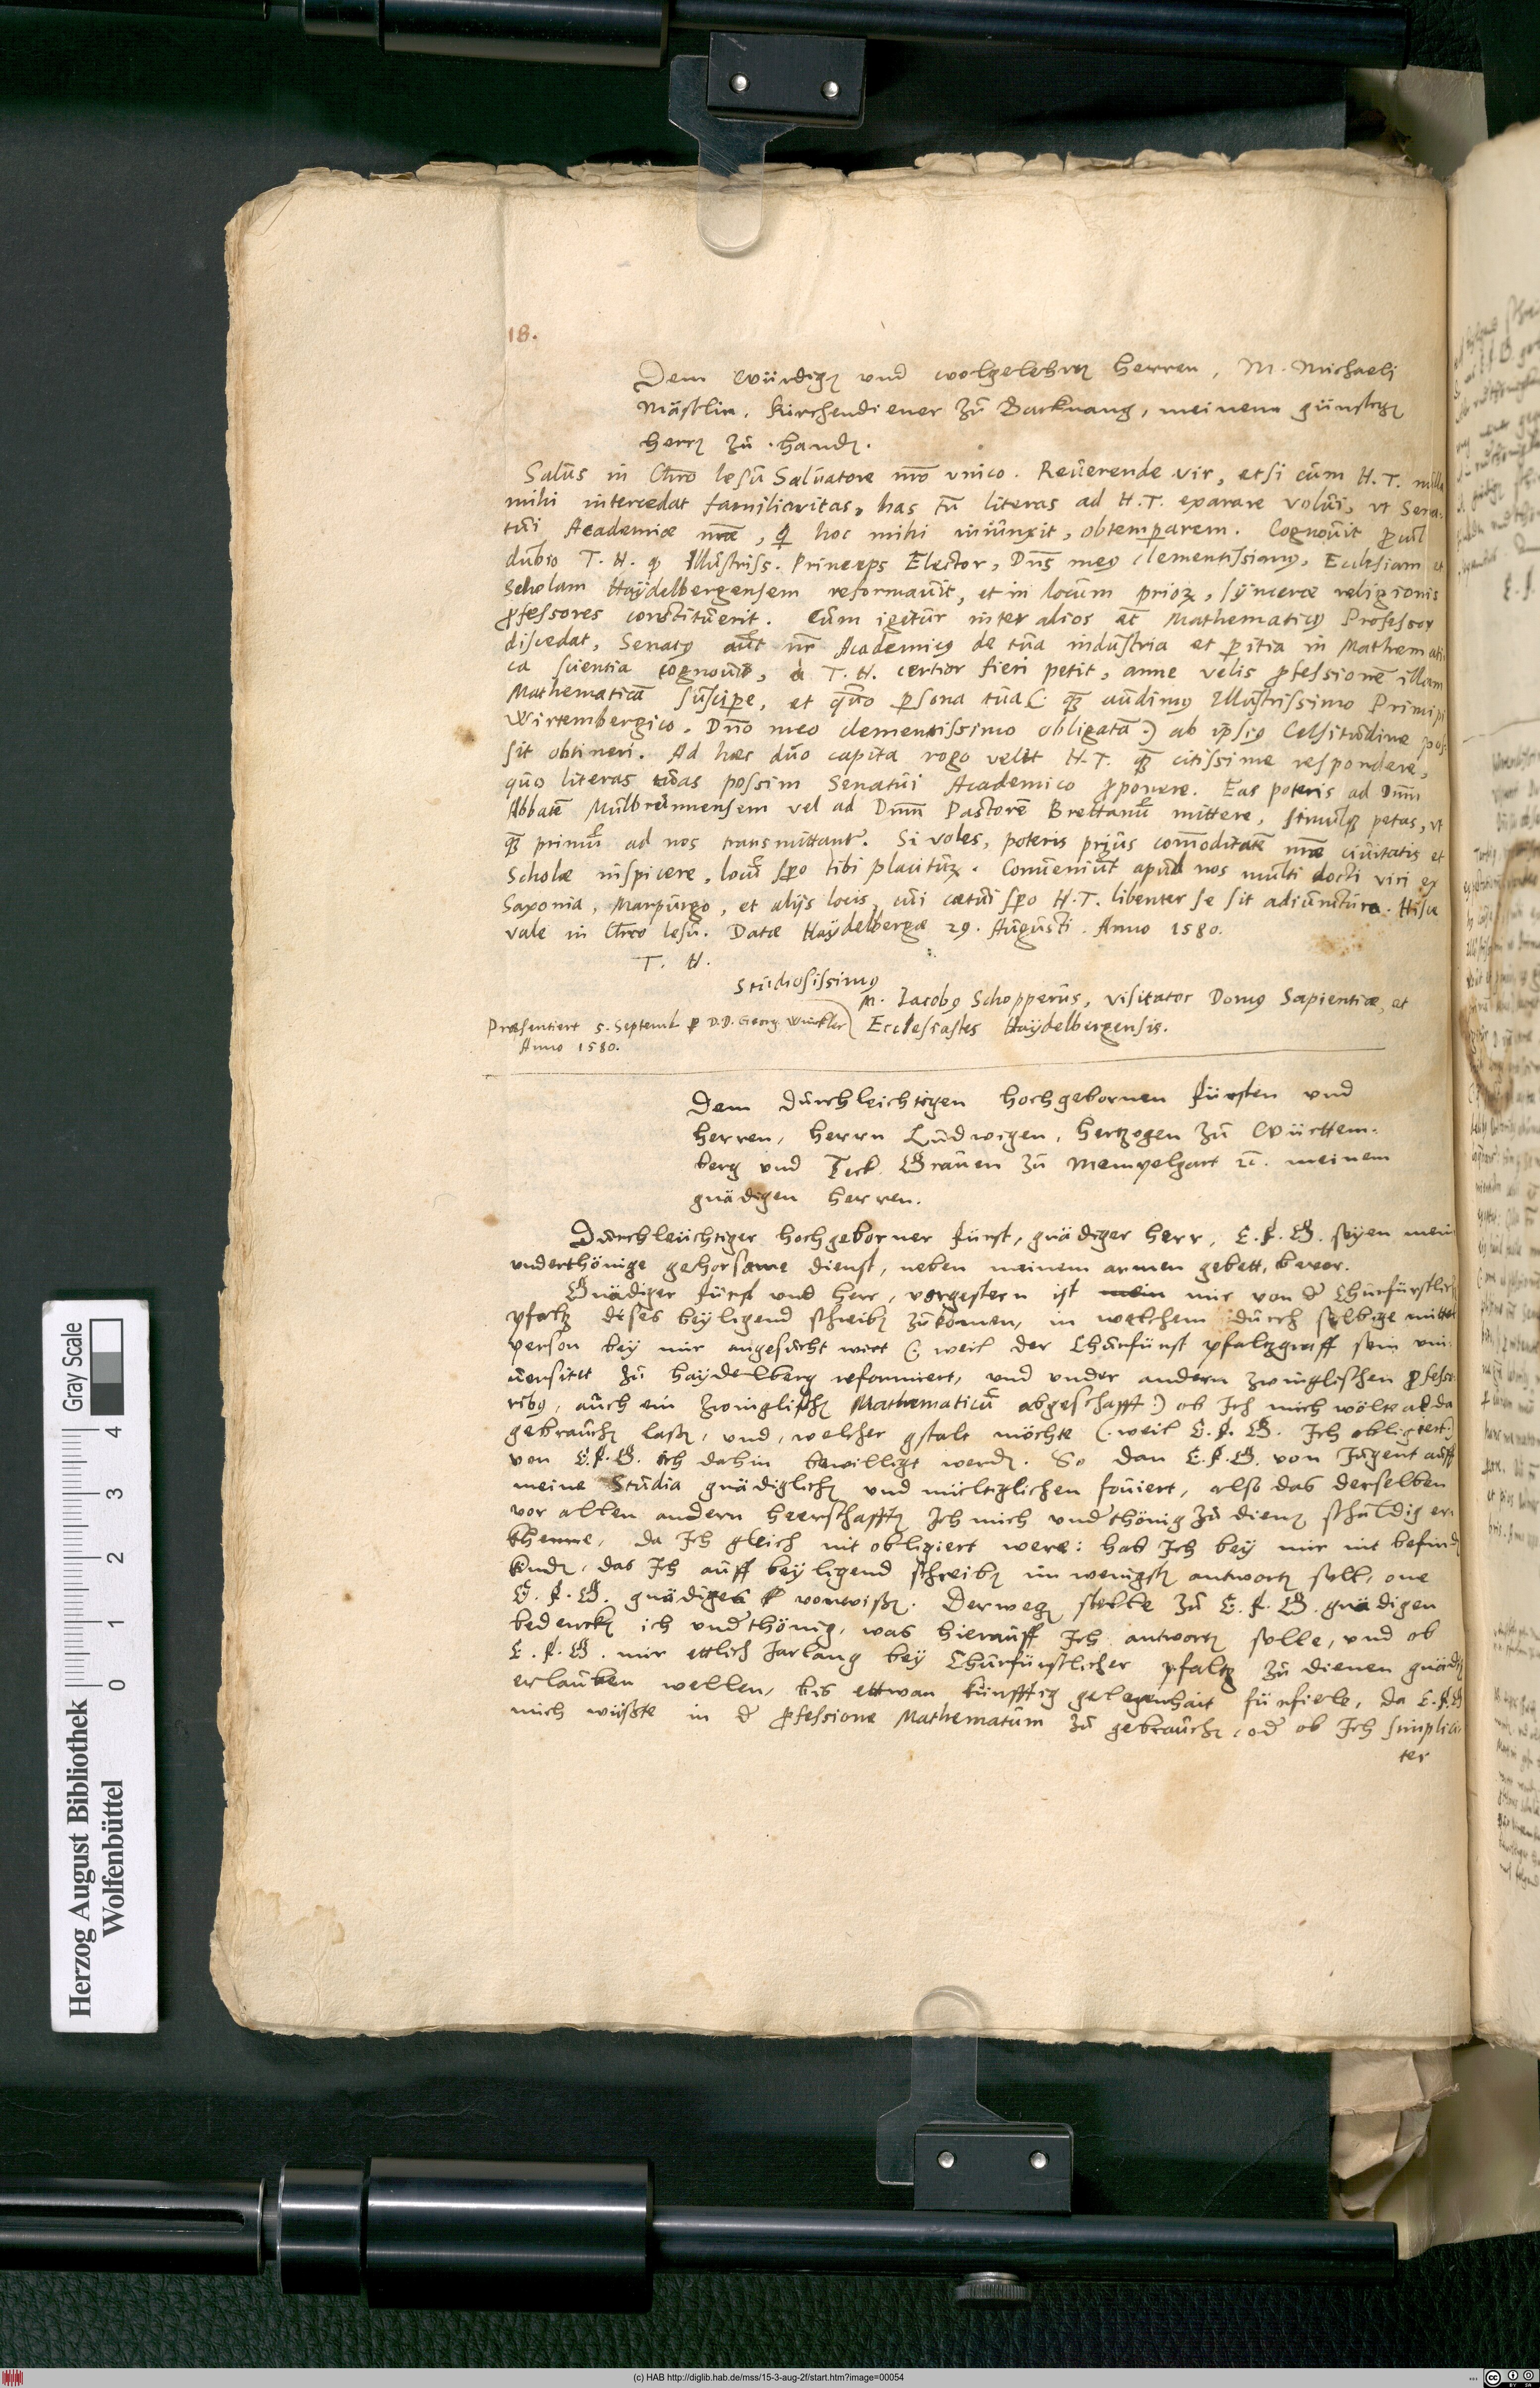 18.
Dem würdigen und wolgelehrten Herren, M. Michaeli
Mästlin, Kirchendiener zů Backnang, meinem günstigen
herren zů handen.
Salus in Chro Iesu Salvatore nro unico. Reuerende vir, etsi cum H. T. nulla
mihi intercedat familiaritas, has tn literas ad H. T. exarare volui, ut Sena-
tui Academiæ nræ, qui hoc mihi iniunxit, obtemperarem. Cognouit procul
dubio T. H. q Illustriss. Princeps Elector, Dns meus clementissimus, Ecclesiam et
Scholam Haÿdelbergensem reformauit, et in locum priorum, sÿnceræ religionis
professores constituerit. Cum igitur inter alios et Mathematicus Professor
discedat, Senatus aut nr Academicus de tua industria et peritia in Mathemati
ca scientia cognouit, à T. H. certior fieri petit, anne velis professionē illam
Mathematicā suscipere, et quo persona tua (: quam audimus Illustrissimo Principi
Wirtembergico, Dno meo clementissimo obligatā :) ab ipsius Celsitudine pos-
sit obtineri. Ad hæc duo capita rogo velit H. T. quam citissime respondere,
quo literas tuas possim Senatui Academico proponere. Eas poteris ad Dnm
Abbatē Mulbrunnensem vel ad Dnm Pastorē Brettanum mittere, simulque petas, ut
quam primum ad nos transmittantur. Si voles, poteris prius commoditatē nræ ciuitatis et
Scholæ inspicere, locum spero tibi placiturum. Conueniunt apud nos multi docti viri ex
Saxonia, Marpurgo, et alijs locis, cui cætui spero H. T. libenter se sit adiunctura. Hisce
vale in Chro Iesu. Datæ Haÿdelbergæ 29. Augusti. Anno 1580.
T. H.
Studiosissimus
M. Iacobus Schopperus, visitator Domus Sapientiæ, et
Ecclesiastes Haÿdelbergensis.
Præsentiert 5. Septemb. p D.D. Georg. Winckler
Anno 1580.
Dem Durchleichtigen hochgebornen Fürsten und
Herren, Herrn Ludwigen, Hertzogen zů Württem-
berg und Teck Grauen zů Mempelgart ꝛc. meinem
gnädigen Herren.
Durchleüchtiger hochgeborner Fürst, gnädiger Herr, E. F. G. seyen mein
underthönige gehorsame dienst, neben meinem armen gebett, bevor.
Gnädiger Fürst und Herr, vorgestern ist mein mir von der Churfürstlichen
Pfaltz dises beyligend schreiben zůkomen, in welchem durch selbige mittel
person bey mir angesucht wirt (: weil der Churfürst Pfaltzgraff sein uni-
uersitet zů Haydelberg reformiert, und under andern zwinglischen professo-
ribus, auch ein zwinglischen Mathematicum abgeschafft :) ob Ich mich wölte alda
gebrauchen lassen, und, welcher gstalt möchte (: weil E. F. G. Ich obligiert :)
von E. F. G. ich dahin bewilligt werden. So dan E. F. G. von Jugent auff
meine Studia gnädiglichen und müeltiglichen fouiert, also das derselben
vor allen andern heerschafften Ich mich underthönig zů dienen schuldig er-
khenne, da Ich gleich nit obligiert were: hab Ich bey mir nit befinden
kinden, das Ich auff beyligend schreiben im wenigsten antworten solt, one
E. F. G. gnädiges vorwissen. Derwegen stelle zů E. F. G. gnädigen
bedencken ich underthönig, was hierauff Ich antworten solle, und ob
E. F. G. mir ettlich Jarlang bey Churfürstlicher Pfaltz zů dienen gnädig
erlauben wellen, bis ettwan künfftig gelegenhait fürfiele, da E. F. G.
mich wüßte in der professione Mathematum zů gebrauchen, oder ob Ich simplici-
ter
Herzog August Bibliothek
Wolfenbüttel
Gray Scale
0 1 2 3 4
(c) HAB http://diglib.hab.de/mss/15-3-aug-2f/start.htm?image=00054